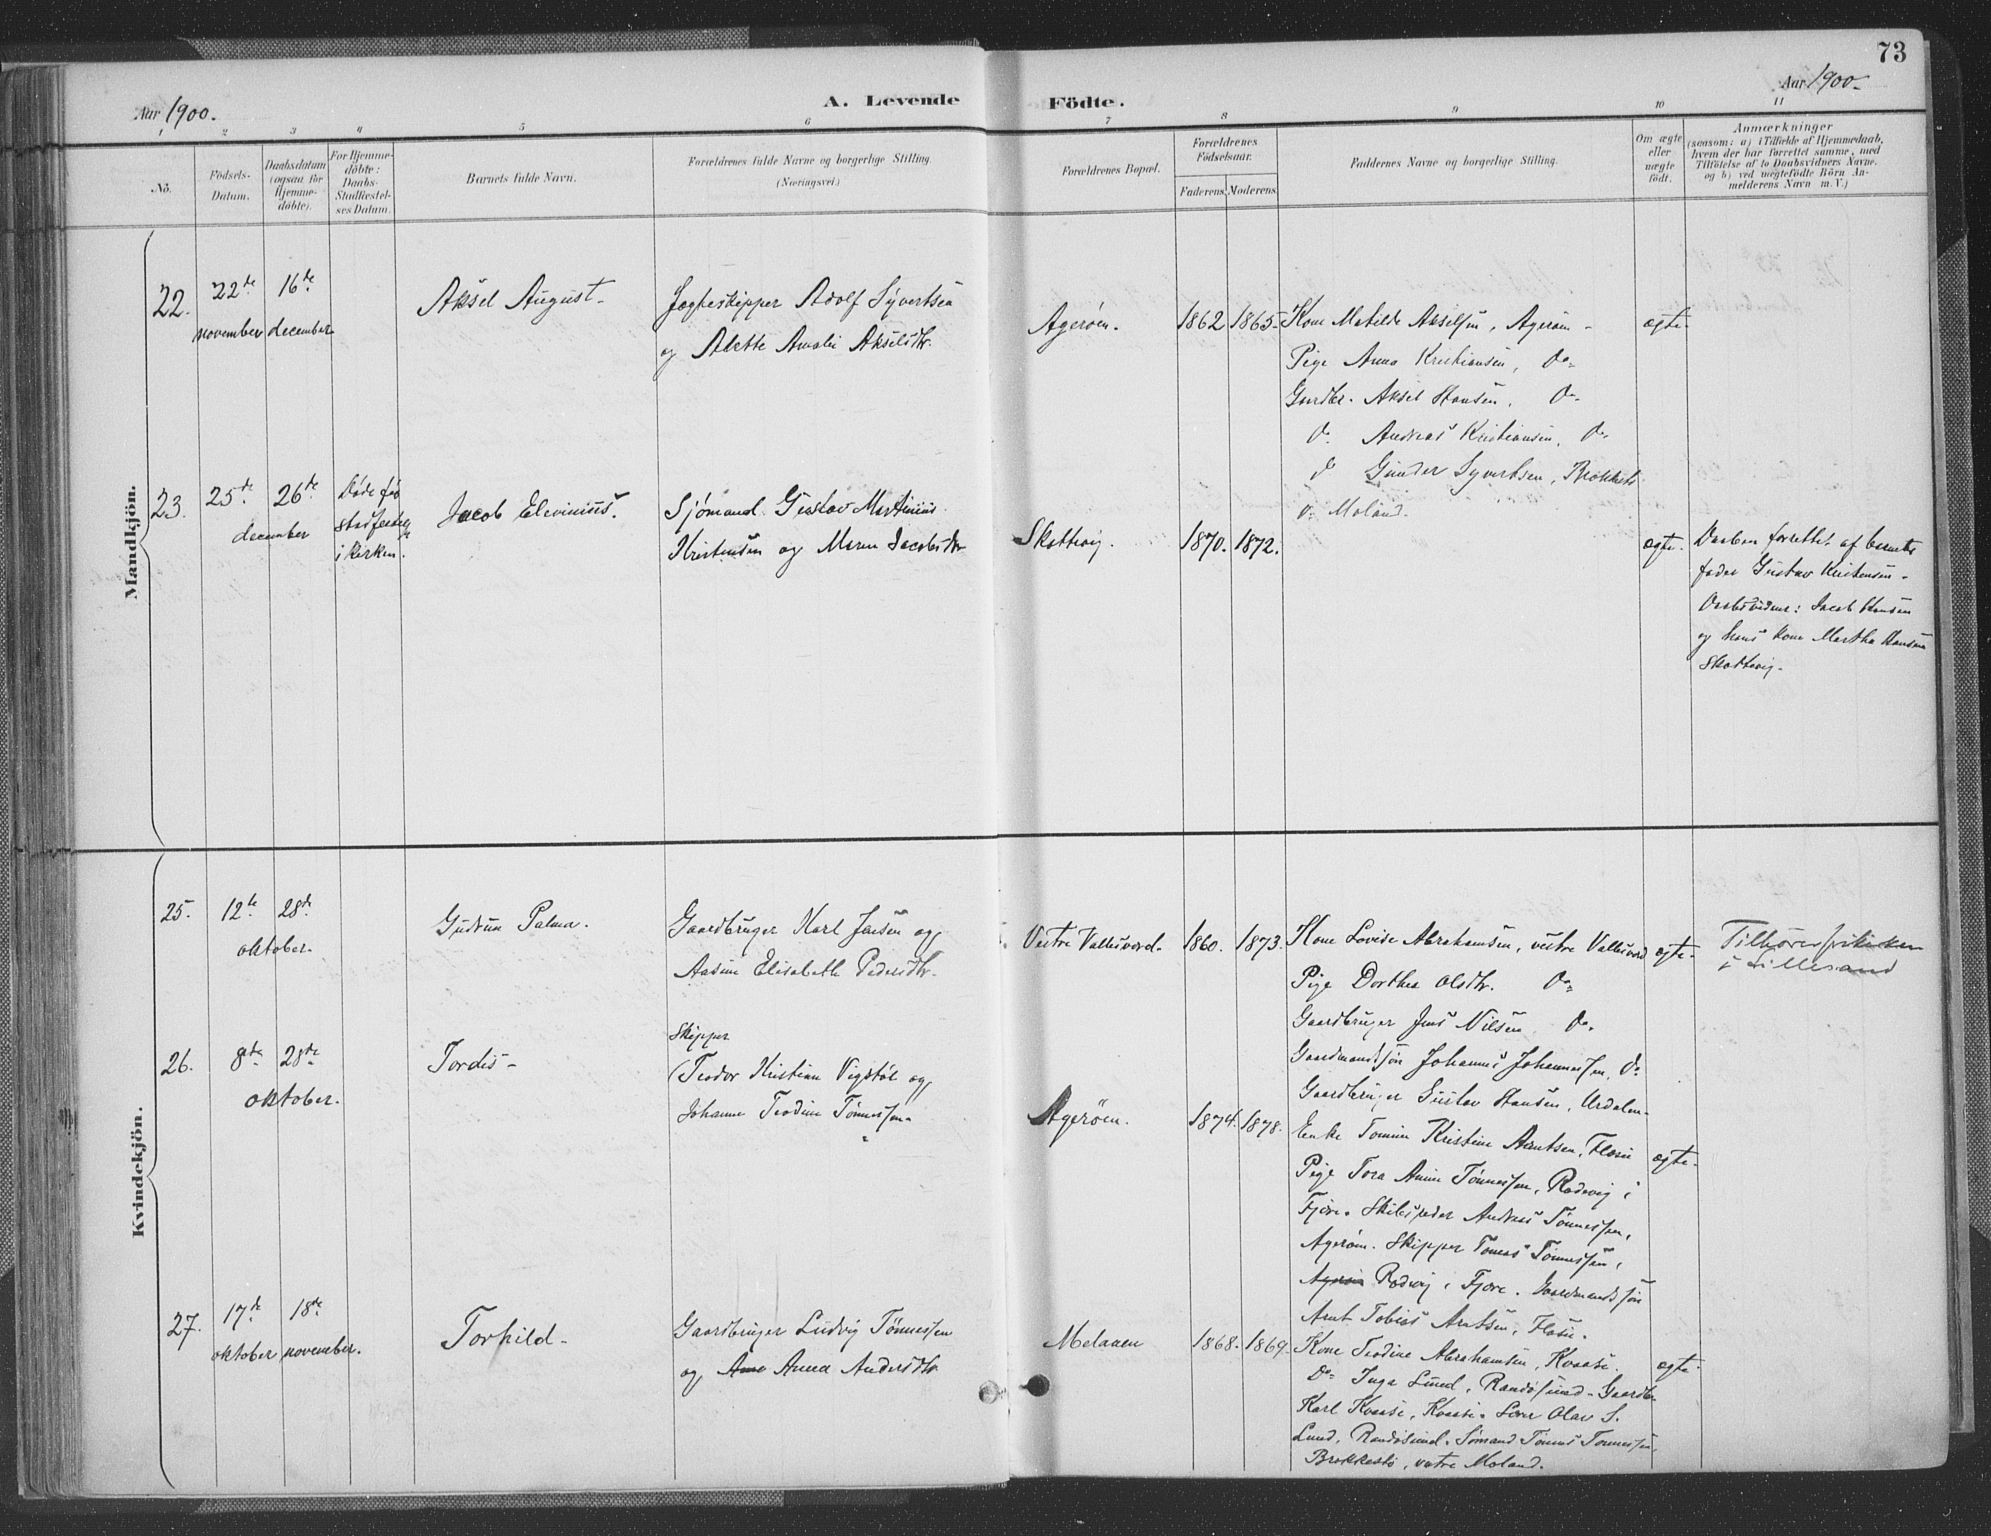 73
Aar 1900.
A. Levende Födte.
Aar 1900.
1 2 3 4 5 6 7 8 9 10 11
No.
Födsels-
Datum.
Daabsdatum
(ogsaa for
Hjemme-
döbte).
For Hjemme-
döbte:
Daabs-
Stadfæstel-
ses Datum.
Barnets fulde Navn.
Forældrenes fulde Navne og borgerlige Stilling.
(Næringsvei.)
Forældrenes Bopæl.
Forældrenes
Födselsaar.
Faderens. Moderens.
Faddernes Navne og borgerlige Stilling.
Om ægte
eller
uægte
födt.
Anmærkninger
(saasom: a) i Tilfælde af Hjemmedaab,
hvem der har forrettet samme, med
Tilföielse af to Daabsvidners Navne.
og b) ved uægtefödte Börn An-
melderens Navn m. V.)
Mandkjön.
22.
22de
november
16de
december
Aksel August-
Jagteskipper Adolf Syvertsen
og Alette Amalie Akselsdtr.
Agerøen.
1862 1865-
Kone Matilde Akselsen, Agerøen -
Pige Anna Kristiansen, Do-
Gardbr. Aksel Hansen, Do-
Do. Andreas Kristiansen, Do-
Do Gunder Syvertsen, Brekkestø
v. Moland.
ægte.
23.
25de 26de
december
Døde før
stadfestelse
i kirken.
Jacob Elevinius.
Sjømand Gustav Martinius
Kristensen og Maren Jacobsdtr
Skottevig.
1870. 1872.
ægte.
Daaben forrettet af barnets
fader Gustav Kristensen -
Daabsvidner: Jacob Hansen
og hans kone Martha Hansen
Skottevig.
Kvindekjön.
25.
12te 28de
oktober.
Gudrun Palma.
Gaardbruger Karl Jensen og
Aasine Elisabeth Pedersdtr.
Vestre Vallesverd.
1860. 1873.
Kone Lovise Abrahamsen, vestre Vallesverd
Pige Dorthea Olsdtr. Do-
Gaardbruger Jens Nilsen, Do.
Gaardmandssøn Johannes Johannessen, Do
Gaardbruger Gustav Hansen, Urdalen-
ægte-
Tilhører frikirken
i Lillesand
26.
8de 28de
oktober.
Tordis-
Skipper
Teodor Kristian Vigstøl og
Johanne Teodine Tønnessen-
Agerøen.
1874. 1878.
Enke Tomine Kristine Arntsen, Flosie
Pige Tora Amine Tønnessen, Rødevig i
Fjære. Skibsreder Andreas Tønnessen,
Agerøen. Skipper Tomas Tønnessen,
Agerøen Rødevig, Fjære. Gaardmandssøn
Arnt Tobias Arntsen, Flosie.
ægte.
27.
17de
oktober
18de
november.
Torhild-
Gaardbruger Ludvig Tønnessen
og Ane Anna Andersdtr
Melanen
1868. 1869.
Kone Teodine Abrahamsen, Kvaase.
Do- Inga Lund, Randøsund- Gaardbr.
Karl Kvaase, Kvaase- Olav S.
Lund, Randøsund. Sømand Tønnes Tønnessen,
Brekkestø, vestre Moland.
ægte-